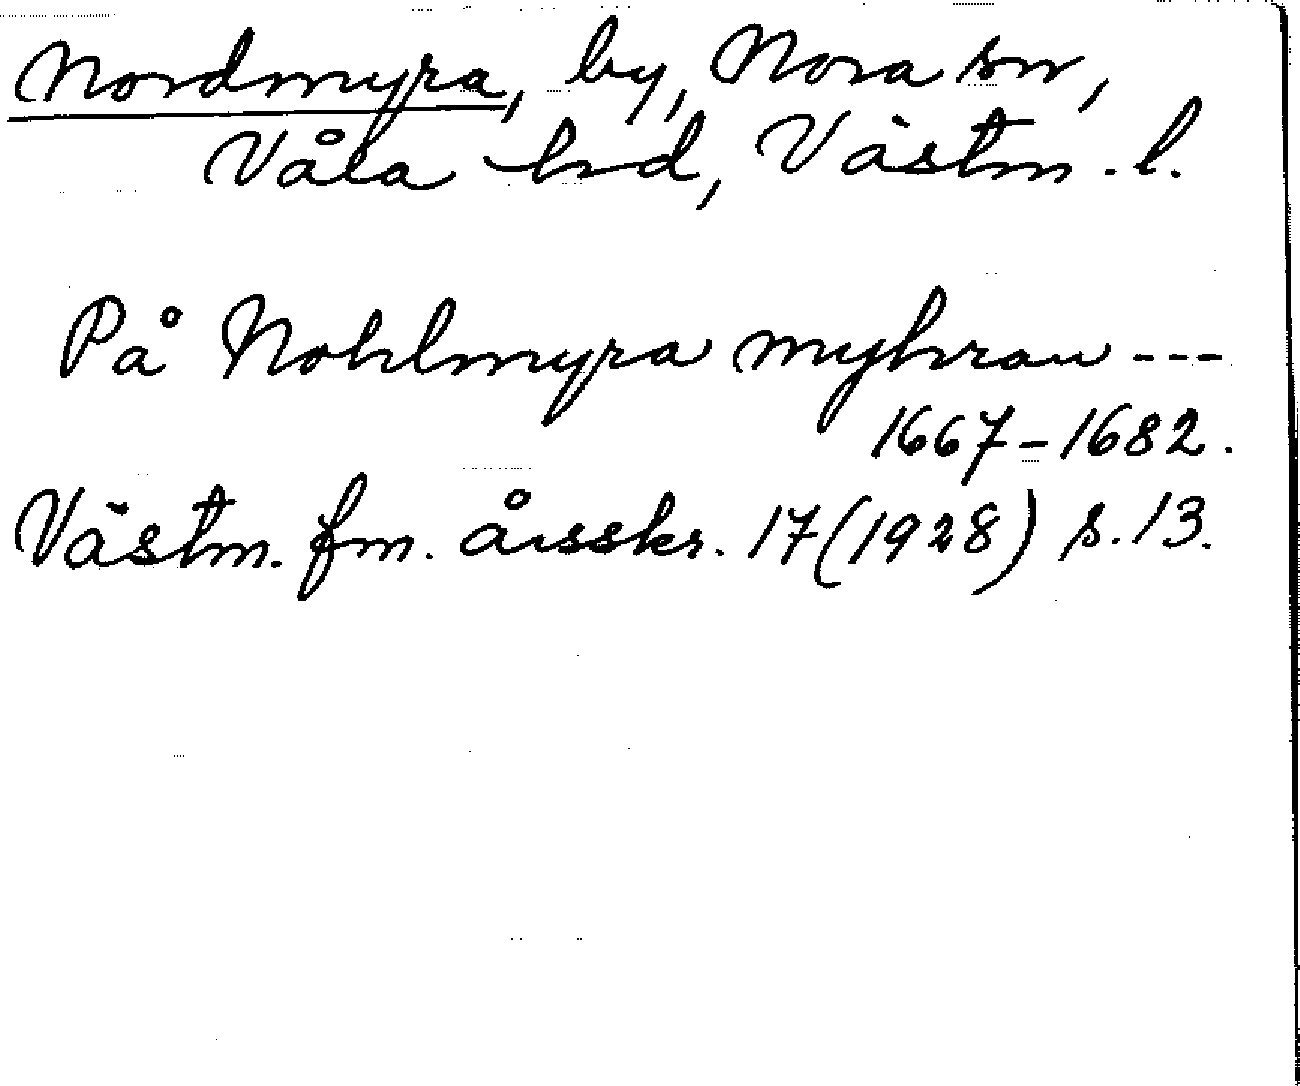 Nordmyra, by, Nora sn,
Våla hd, Västm. l.
På Nohlmyra myhran ---
1667-1682.
Västm. fm. årsskr. 17(1928) s. 13.